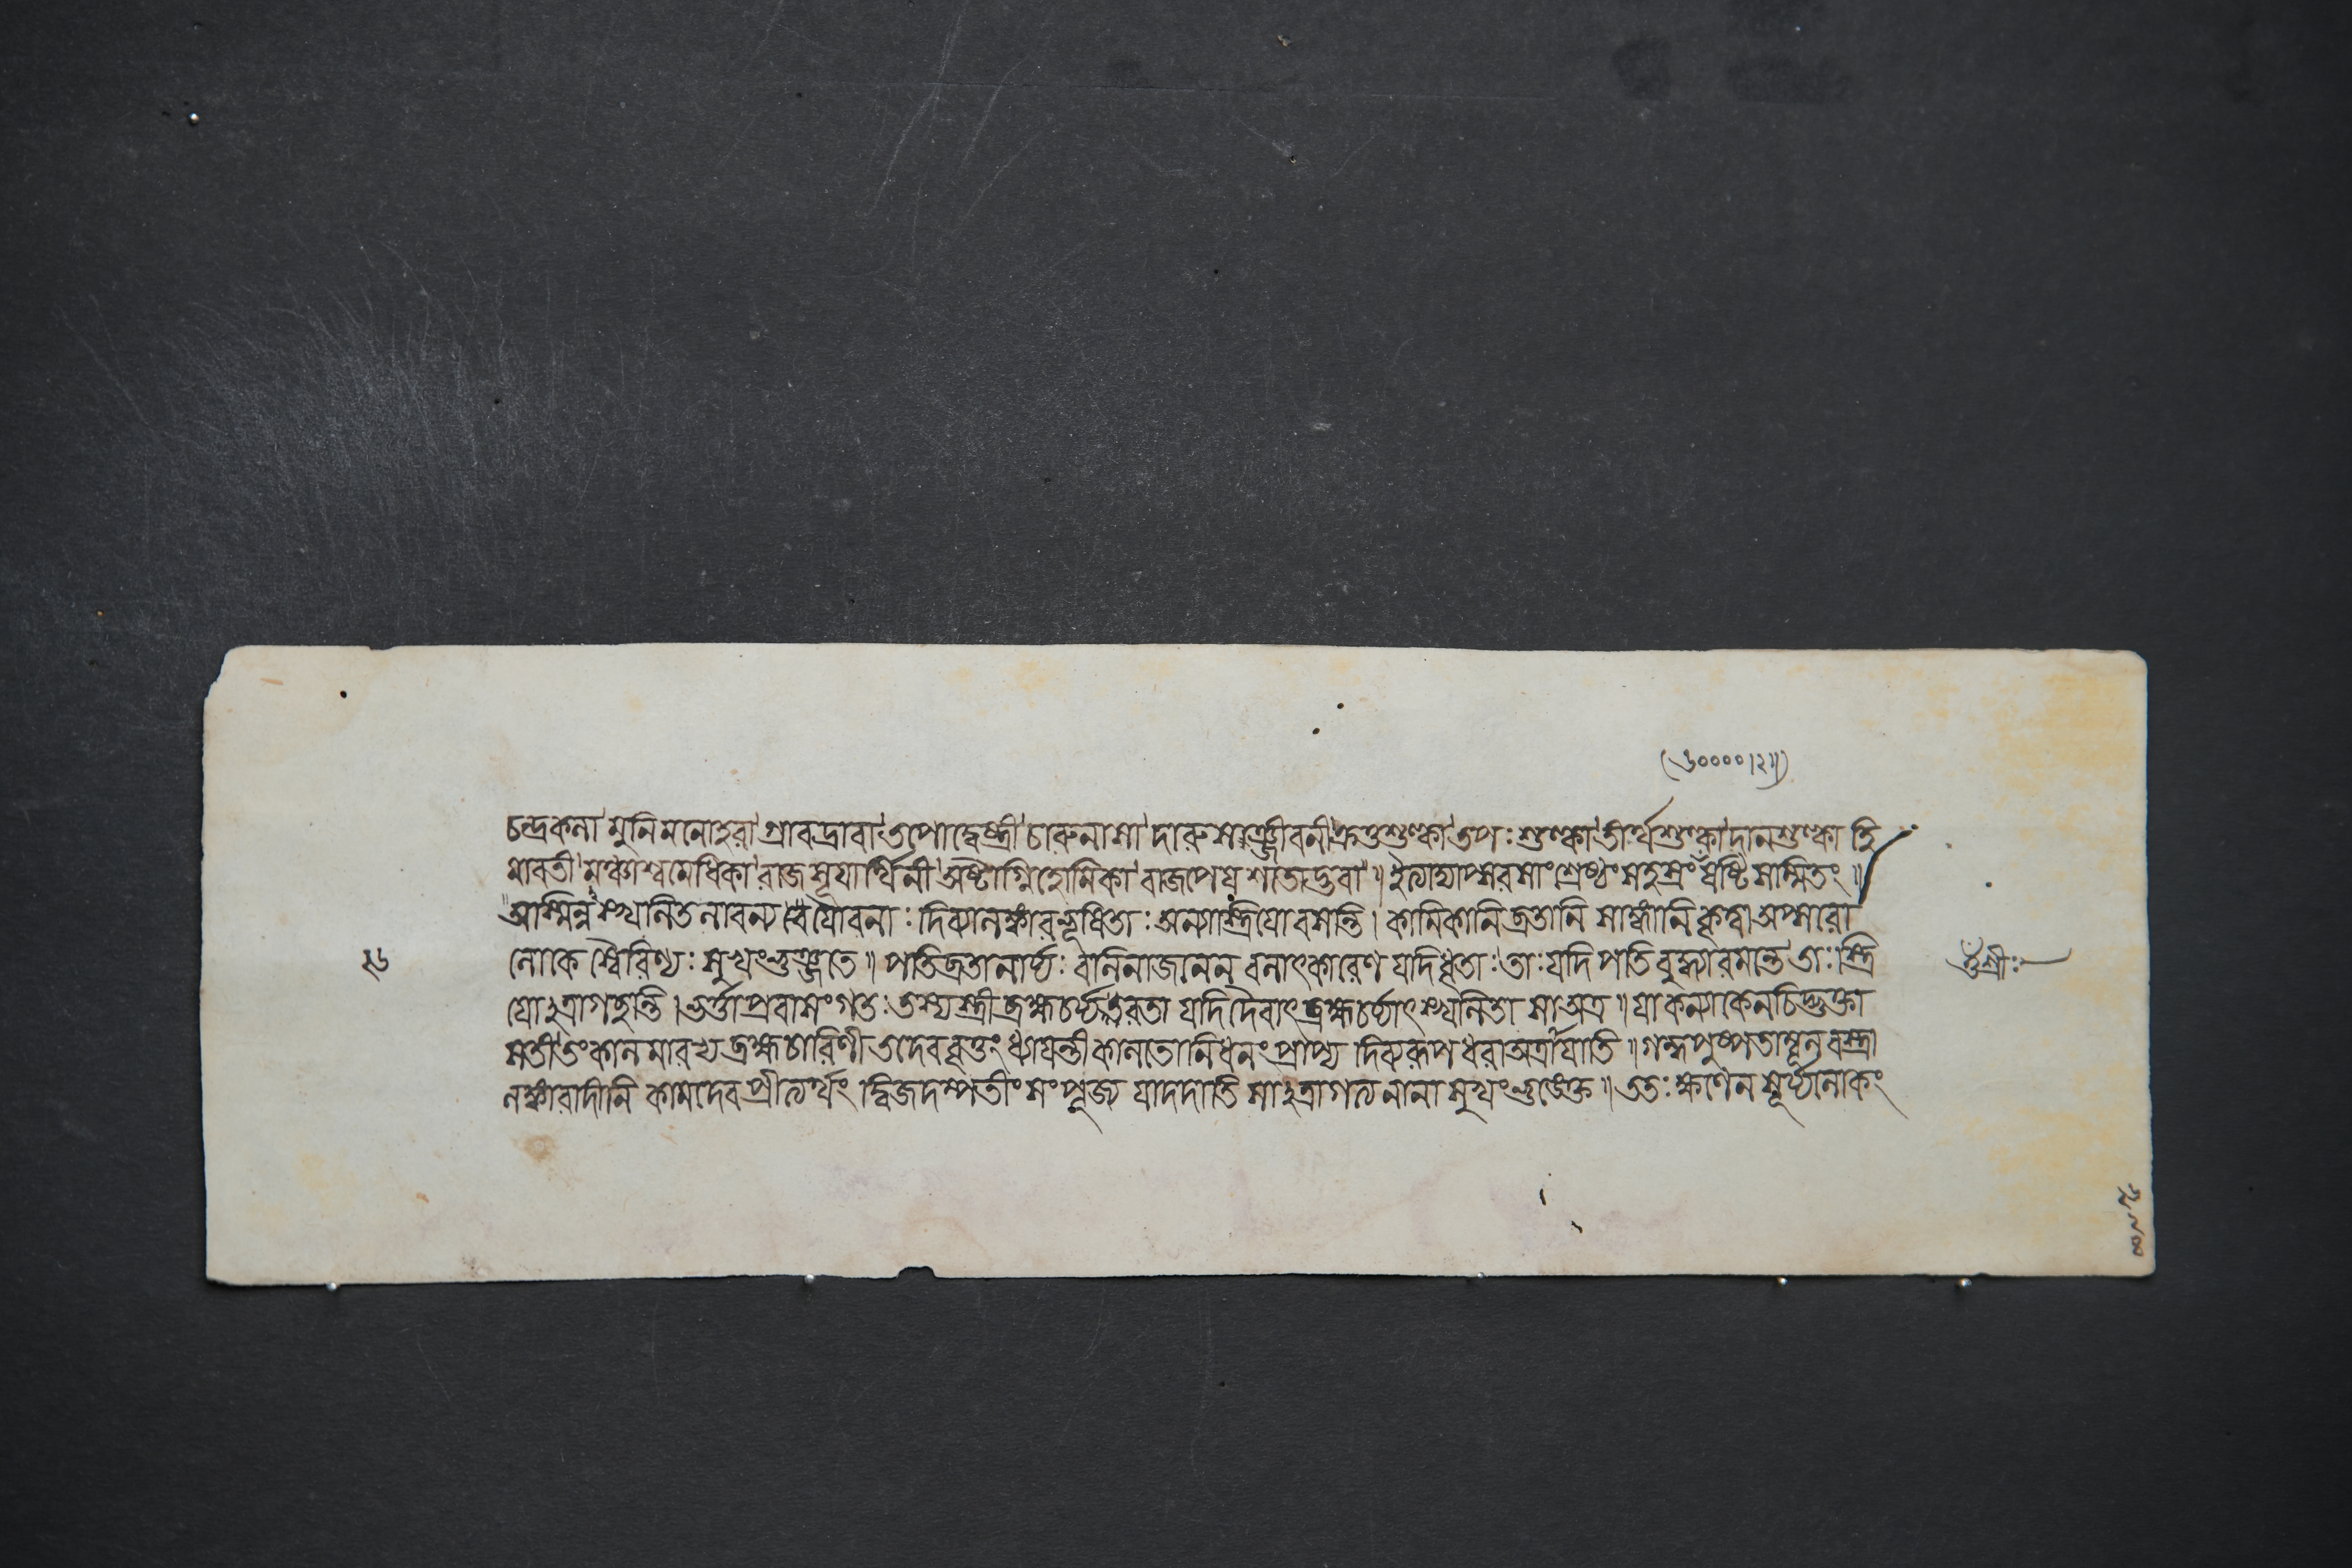 (৬০০০০।২॥)
চন্দ্রকলা মুনিমনোহরা গ্রাবদ্রাবা তপোদ্বেষ্ট্রী চারুনাসা দারুসঞ্জীবনী ক্রতুশুল্কা তপঃশুল্কা তীর্থশুল্কা দানশুল্কা হি
মাবতী অশ্বমেধিকা রাজসূয়ার্থিনী অষ্টাগ্নিহোমিকা বাজপেয়শতোদ্ভবা ॥ ইত্যাদ্যাপ্সরসাং শ্রেষ্ঠং সহস্রং ষষ্টিসম্মিতং ॥
অস্মিন্নস্খলিতলাবণ্যযৌবনাঃ দিব্যালঙ্কারভূষিতাঃ অন্যাস্ত্রিয়ো বসন্তি । কামিকানি ব্রতানি সাঙ্গানি কৃত্বা অপ্সরো
লোকে স্বৈরিণ্যঃ সুখং ভুঞ্জতে ॥ পতিব্রতা নার্য্যঃ বলিনা জনেন বলাৎকারেণ যদি ধৃতাঃ তাঃ যদি পতিবুদ্ধ্যা রমন্তে তাঃ স্ত্রি
২৬
ওঁ শ্রীঃ
য়োঽত্রাগচ্ছন্তি । ভর্ত্তা প্রবাসং গতঃ তস্য স্ত্রী ব্রহ্মচর্য্যব্রতরতা যদি দৈবাৎ ব্রহ্মচর্য্যাৎ স্খলিতা সা অত্র ॥ যা কন্যা কেনচিদ্ভুক্তা
সতী তং কালমারভ্য ব্রহ্মচারিণী তদেব বৃত্তং ধ্যায়ন্তী কালতো নিধনং প্রাপ্য দিব্যরূপধরা অত্রায়াতি ॥ গন্ধপুষ্পতাম্বূলবস্ত্রা
লঙ্কারাদীনি কামদেবপ্রীত্যর্থং দ্বিজদম্পতীং সংপূজ্য যা দদাতি সাঽত্রাগত্য নানাসুখং ভুঙ্ক্তে ॥ ততঃ ক্ষণেন সূর্য্যলোকং